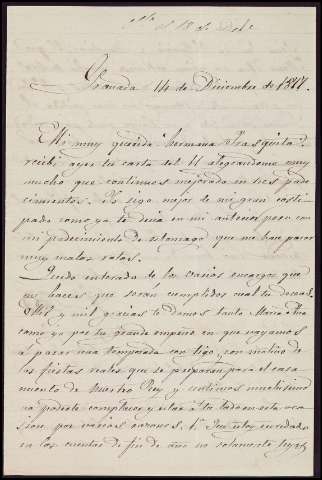 el 18 de Dbe
Granada 14 de Diciembre de 1877.
Mi muy querida hermana Frasquita:
recibi ayer tu carta del 11 alegrandome muy
mucho que continues mejorada en tus pade
cimientos. Yo sigo mejor de mi gran costi
pado como ya te decia en mi anterior pero con
mi padecimiento de estomago que me hace pasar
muy malos ratos.
Quedo enterada de los varios encargos que
me haces que serán cumplidos cual tu deseas.
Mil y mil gracias te damos tanto Maria
como yo por tu grande empeño en que vayamos
a pasar una temporada con tigo, con motivo de
las fiestas reales que se preparan para el casa
miento de Nuestro Rey y sentimos muchisimo
no poderte complacer y estar á tu lado en esta oca
sion por varias razones. 1ª Pepe estoy enredado
en las cuentas de fin de año no solamente